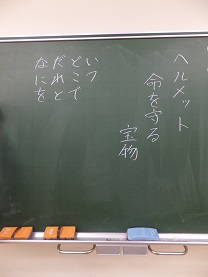 ヘルメット
命を守る
宝物
いつ
どこで
だれと
なにを